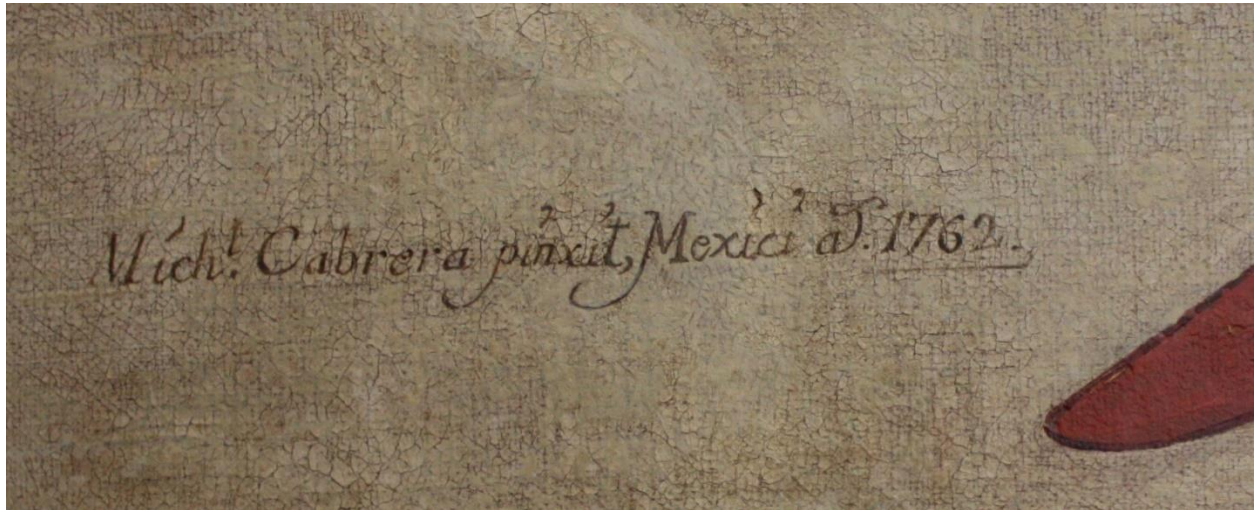 Mich.l Cabrera pinxit, Mexici aT. 1762.